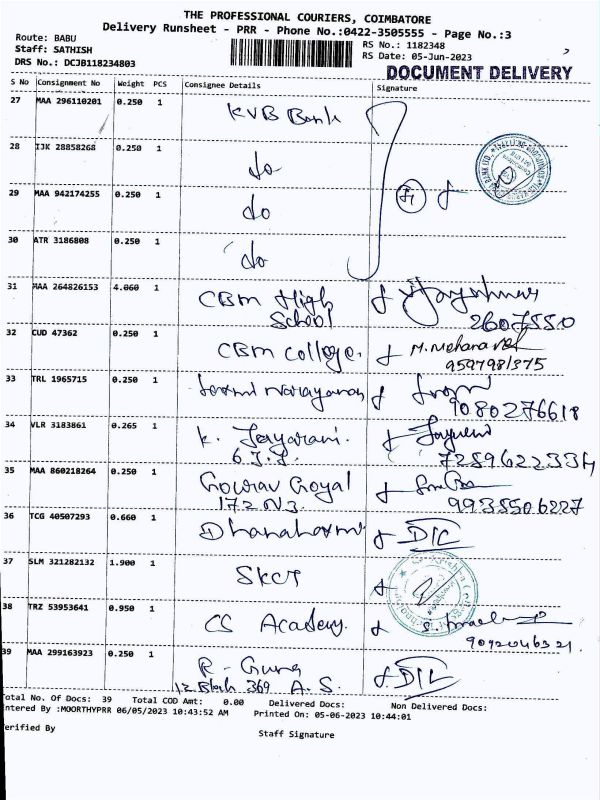 THE PROFESSIONAL COURIERS, COIMBATORE
Delivery Runsheet - PRR - Phone No.:0422-3505555 - Page No.:3
Route: BABU
RS No.: 1182348
Staff: SATHISH
RS Date: 05-Jun-2023
DRS No.: DCJB118234803
DOCUMENT DELIVERY
S No Consignment No Weight PCS Consignee Details Signature
27 MAA 296110201 0.250 1 KVB Bank
28 IJK 28858268 0.250 1 do
29 MAA 942174255 0.250 1 do
30 ATR 3186808 0.250 1 do
31 MAA 264826153 4.060 1 CBM High
School 2607550
32 CUD 47362 0.250 1 CBM College.
9597981375
33 TRL 1965715 0.250 1 Narayanan
9080276618
34 VLR 3183861 0.265 1 K. Jayarani.
7259622334
35 MAA 860218264 0.250 1 Gourav Goyal
172 N3 9935506227
36 TCG 40507293 0.660 1 DIL
37 SLM 321282132 1.900 1 SKCT
38 TRZ 53953641 0.950 1 CS Academy.
9092046321.
39 MAA 299163923 0.250 1 R- Guna DIL
12 Block 369 A. S.
Total No. Of Docs: 39 Total COD Amt: 0.00 Delivered Docs: Non Delivered Docs:
Entered By :MOORTHYPRR 06/05/2023 10:43:52 AM Printed On: 05-06-2023 10:44:01
Verified By Staff Signature